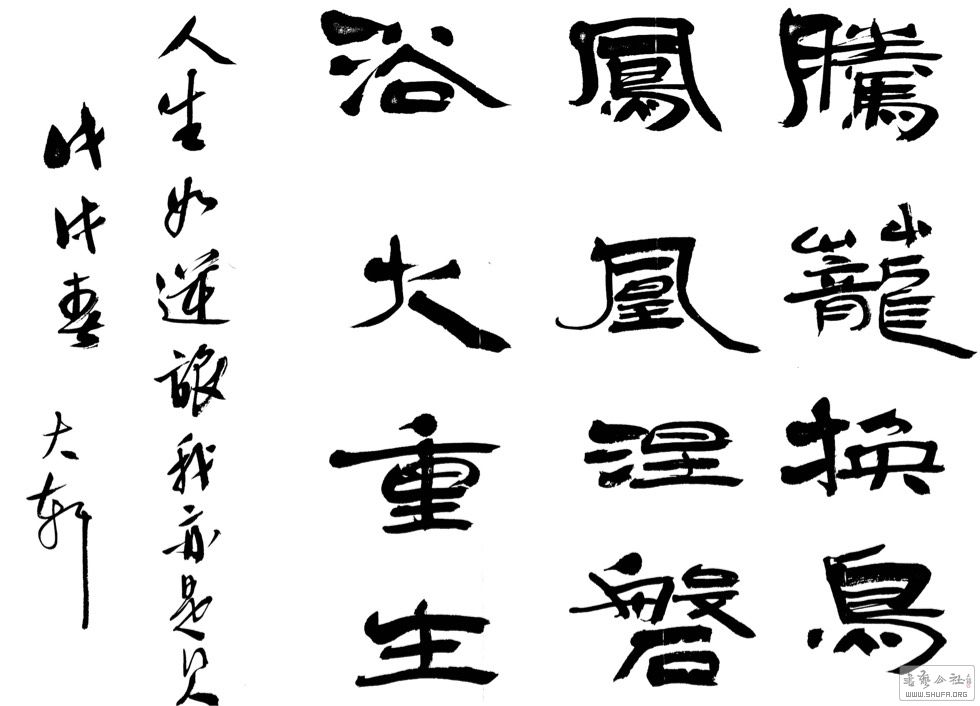 騰籠換鳥
鳳凰涅磐
浴火重生
人生如逆旅我亦是行人
戊戌春 大軒
書藝公社
WWW.SHUFA.ORG